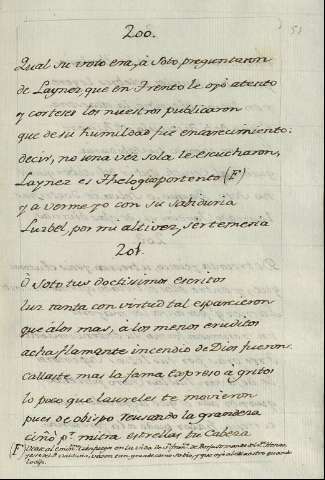 200.
51
Qual su voto era, à Soto, preguntaron
de Laynez, que en Trento le oyó atento
y corteses los nuestros publicaron
que de su humildad fue encarecimiento:
decir, no una vez sola le escucharon,
Laynez es Thelogo portento (F)
y á verme yo con su Sabiduria
Luzbel, por mi altivez, ser temeria
201.
ò Soto tus doctisimos escritos
luz tanta con virtud tal esparcieron
que álos mas, à los menos eruditos
acha flamante incendio de Dios fueron.
Callaste mas la fama expresò à gritos
lo poco que laureles te movieron
pues de obispo reusando la grandeza
Ciñó pr. mitra estrellas tu Cabeza
(F)